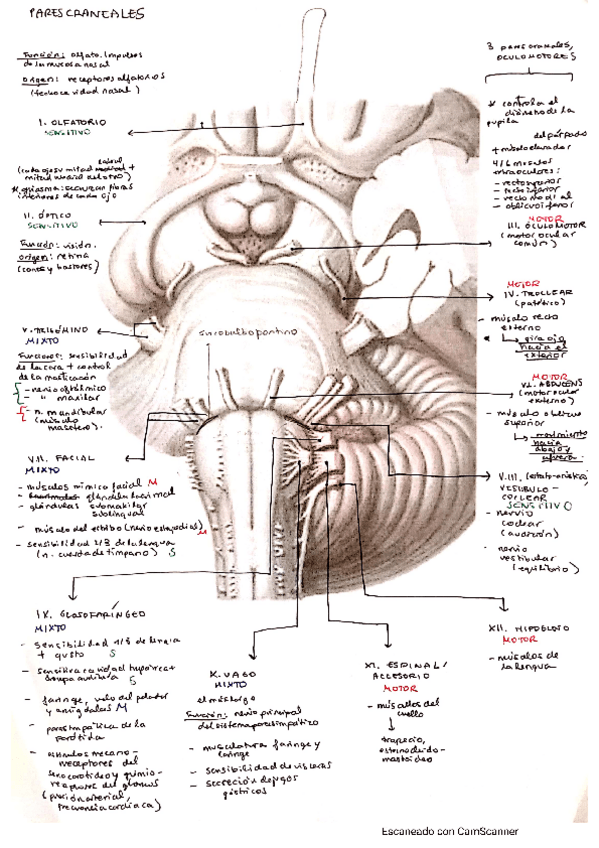 PARES CRANEALES
Función: olfato. Impulsos
de la mucosa nasal
Origen: receptores olfatorios
(techo cavidad nasal)
I. OLFATORIO
SENSITIVO
lateral
(cada ojo su mitad medial +
mitad medial del otro)
* quiasma: se cruzan fibras
interiores de cada ojo
II. ÓPTICO
SENSITIVO
Función: visión.
origen: retina
(conos y bastones)
V. TRIGÉMINO
MIXTO
Funciones: sensibilidad
de la cara + control
de la masticación
- nervio oftálmico
- " maxilar
- n. mandibular
(músculo
masetero).
VII. FACIAL
MIXTO
- músculos mímica facial M
- glándula lacrimal
- glándulas submaxilar
sublingual
- músculo del estribo (nervio estapedial) M
- sensibilidad 2/3 de la lengua
(n. cuerda de tímpano) S
surco bulbopontino
3 pares craneales,
OCULOMOTORES
* controla el
diámetro de la
pupila
del párpado
+ músculo elevador
4/6 músculos
intraoculares:
- recto superior
- recto inferior
- recto medial
- oblicuo inferior
MOTOR
III. OCULOMOTOR
(motor ocular
común)
MOTOR
IV. TROCLEAR
(patético)
- músculo recto
externo
gira ojo
hacia el
exterior
MOTOR
VI. ABDUCENS
(motor ocular
externo)
- músculo oblicuo
superior
movimiento
hacia
abajo y
afuera
VIII. (estato-acústico)
VESTIBULO-
COCLEAR
SENSITIVO
- nervio
coclear
(audición)
- nervio
vestibular
(equilibrio)
IX. GLOSOFARÍNGEO
MIXTO
- sensibilidad 1/3 de lengua
+ gusto S
S
- faringe, velo del paladar
y amígdalas M
- parasimpática de la
parótida
- estímulos mecano-
receptores del
seno carotídeo y quimio-
receptores del glomus
(presión arterial,
frecuencia cardíaca)
X. VAGO
MIXTO
el más largo
Función: nervio principal
del sistema parasimpático
- musculatura faringe y
laringe
- sensibilidad de vísceras
- secreción de jugos
gástricos
XI. ESPINAL/
ACCESORIO
MOTOR
- músculos del
cuello
trapecio,
esternocleido-
mastoideo
XII. HIPOGLOSO
MOTOR
- músculos de
la lengua
Escaneado con CamScanner